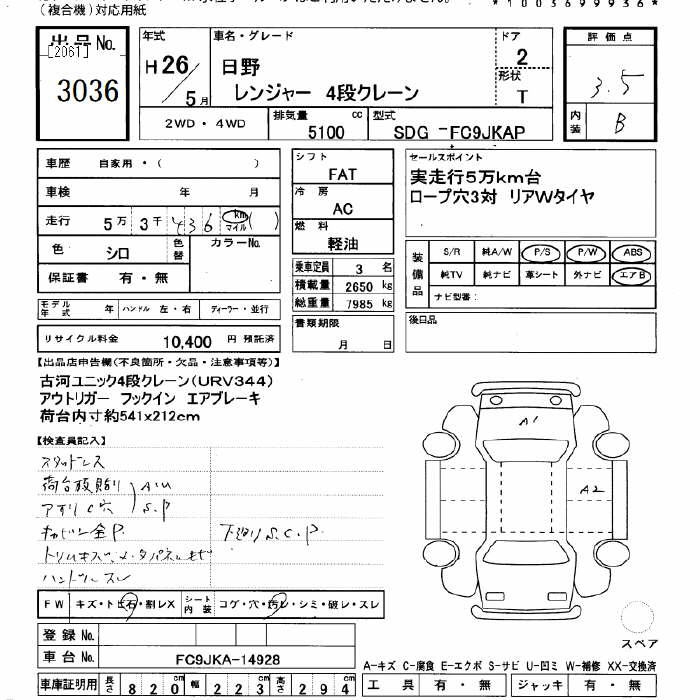 (複合機)対応用紙
*1003699936*
出品No.
[2061]
3036
年式
H26/5月
車名・グレード
日野
レンジャー 4段クレーン
ドア
2
形状
T
2WD・4WD
排気量
5100 cc
型式
SDG -FC9JKAP
評価点
3.5
内装
B
車歴 自家用・( )
車検 年 月
走行 5万3千436 km マイル ( )
色 シロ 色替 カラーNo.
保証書 有・無
モデル年式 年 ハンドル 左・右 ディーラー・並行
リサイクル料金 10,400 円 預託済
シフト
FAT
冷房
AC
燃料
軽油
乗車定員 3 名
積載量 2650 kg
総重量 7985 kg
書類期限
月 日
セールスポイント
実走行5万km台
ロープ穴3対 リアWタイヤ
装備品
S/R 純A/W P/S P/W ABS
純TV 純ナビ 革シート 外ナビ エアB
ナビ型番:
後日品
【出品店申告欄(不良箇所・欠品・注意事項等)】
古河ユニック4段クレーン(URV344)
アウトリガー フックイン エアブレーキ
荷台内寸約541x212cm
【検査員記入】
スタッドレス
アオリ C穴
S.P
キャビン全P
下廻りS.C.P
ハンドルスレ
A1
A2
FW キズ・トビ石・割レX シート内装 コゲ・穴・汚レ・シミ・破レ・スレ
登録No.
車台No. FC9JKA-14928
スペア
A-キズ C-腐食 E-エクボ S-サビ U-凹ミ W-補修 XX-交換済
車庫証明用 長さ 820 cm 幅 223 cm 高さ 294 cm
工具 有・無 ジャッキ 有・無